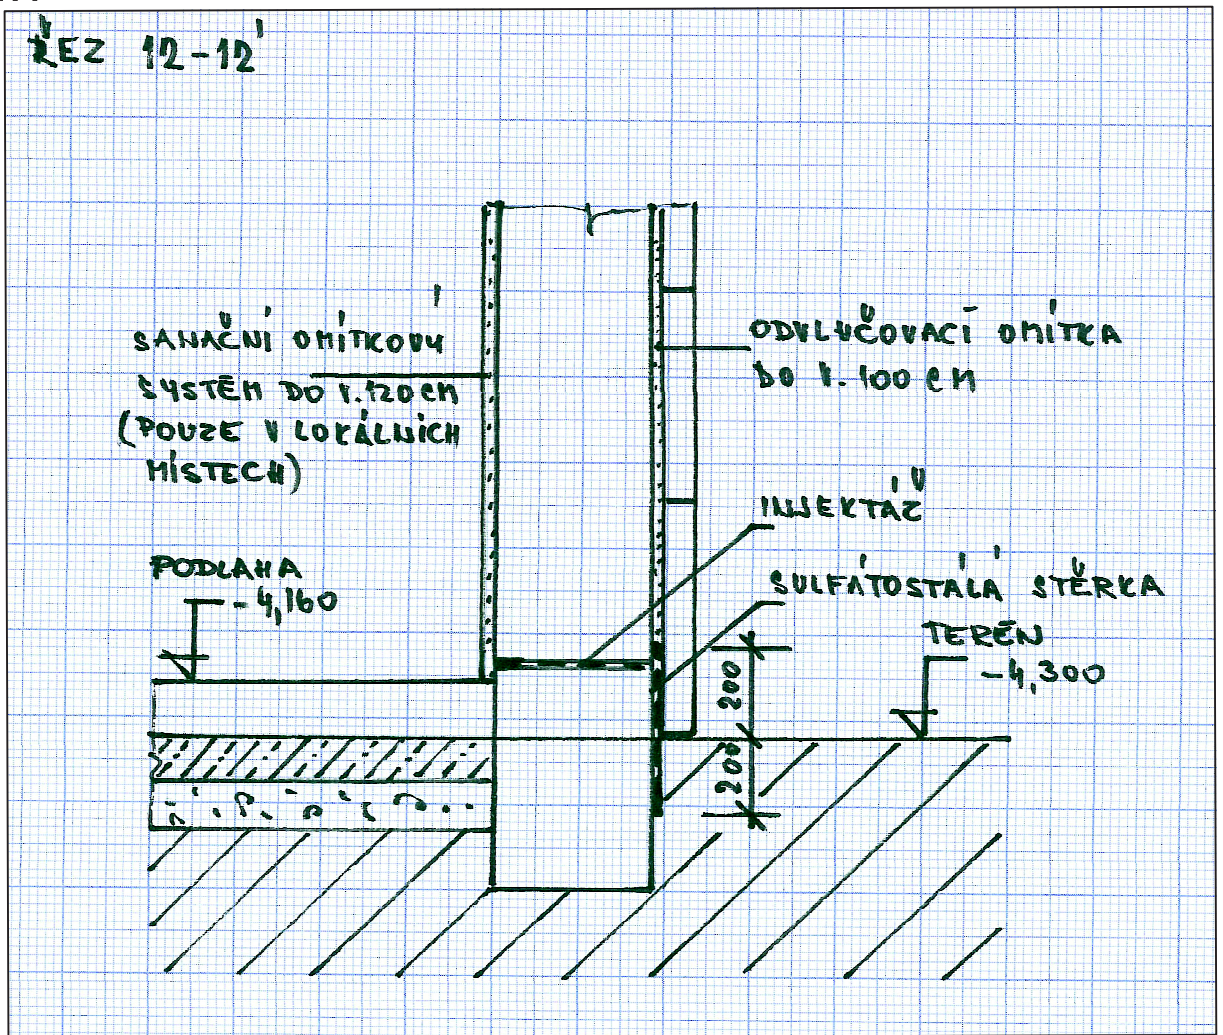 ŘEZ 12-12'
SANAČNÍ OMÍTKOVÝ
SYSTÉM DO V.120 CM
(POUZE V LOKÁLNÍCH
MÍSTECH)
ODVLHČOVACÍ OMÍTKA
DO V. 100 CM
INJEKTÁŽ
SULFÁTOSTÁLÁ STĚRKA
PODLAHA
-4,160
TERÉN
-4,300
200
200